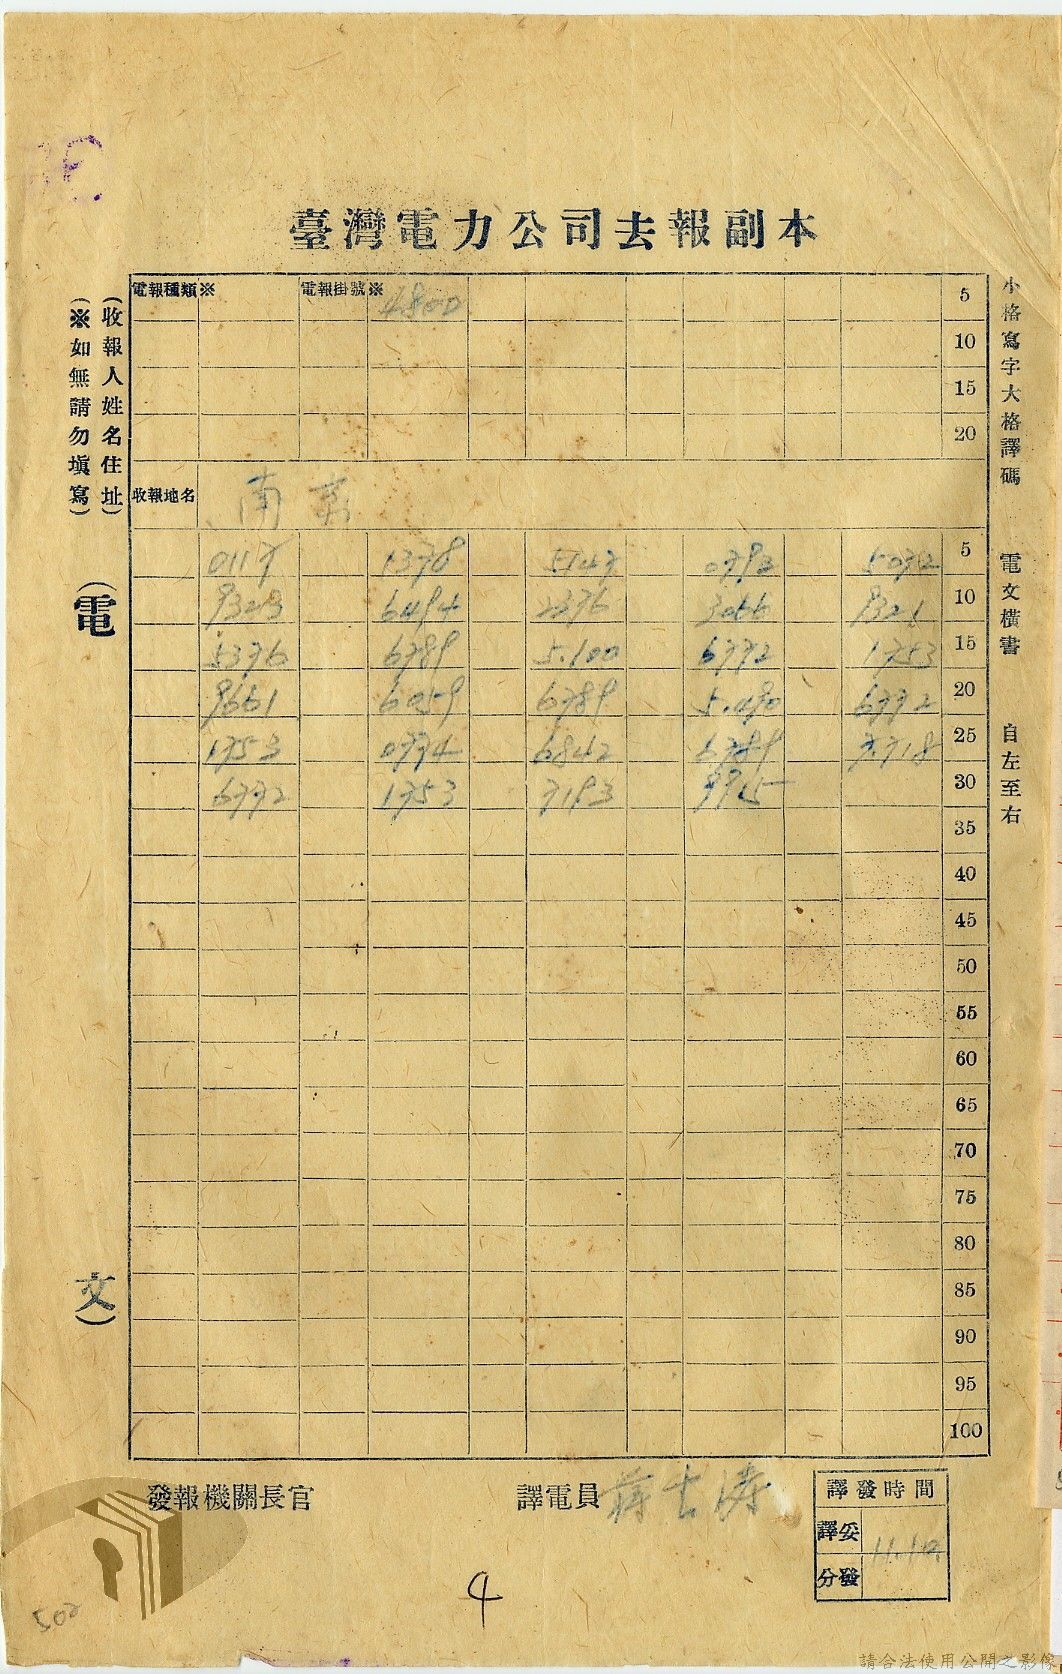 臺灣電力公司去報副本
電報種類※ 電報掛號※ 4800 5
10
15
20
收報地名 南京
1378 5147 5
6494 2376 3066 9321 10
5376 6789 5.100 6772 1753 15
9661 6059 6789 5.490 6772 20
1753 0774 6842 6789 7.718 25
6772 1753 7193 30
35
40
45
50
55
60
65
70
75
80
85
90
95
100
(收報人姓名住址)
(※如無請勿塡寫)
(電
文)
小格寫字大格譯碼 電文橫書 自左至右
發報機關長官 譯電員
譯發時間
譯妥
分發
4
500
請合法使用公開之影像